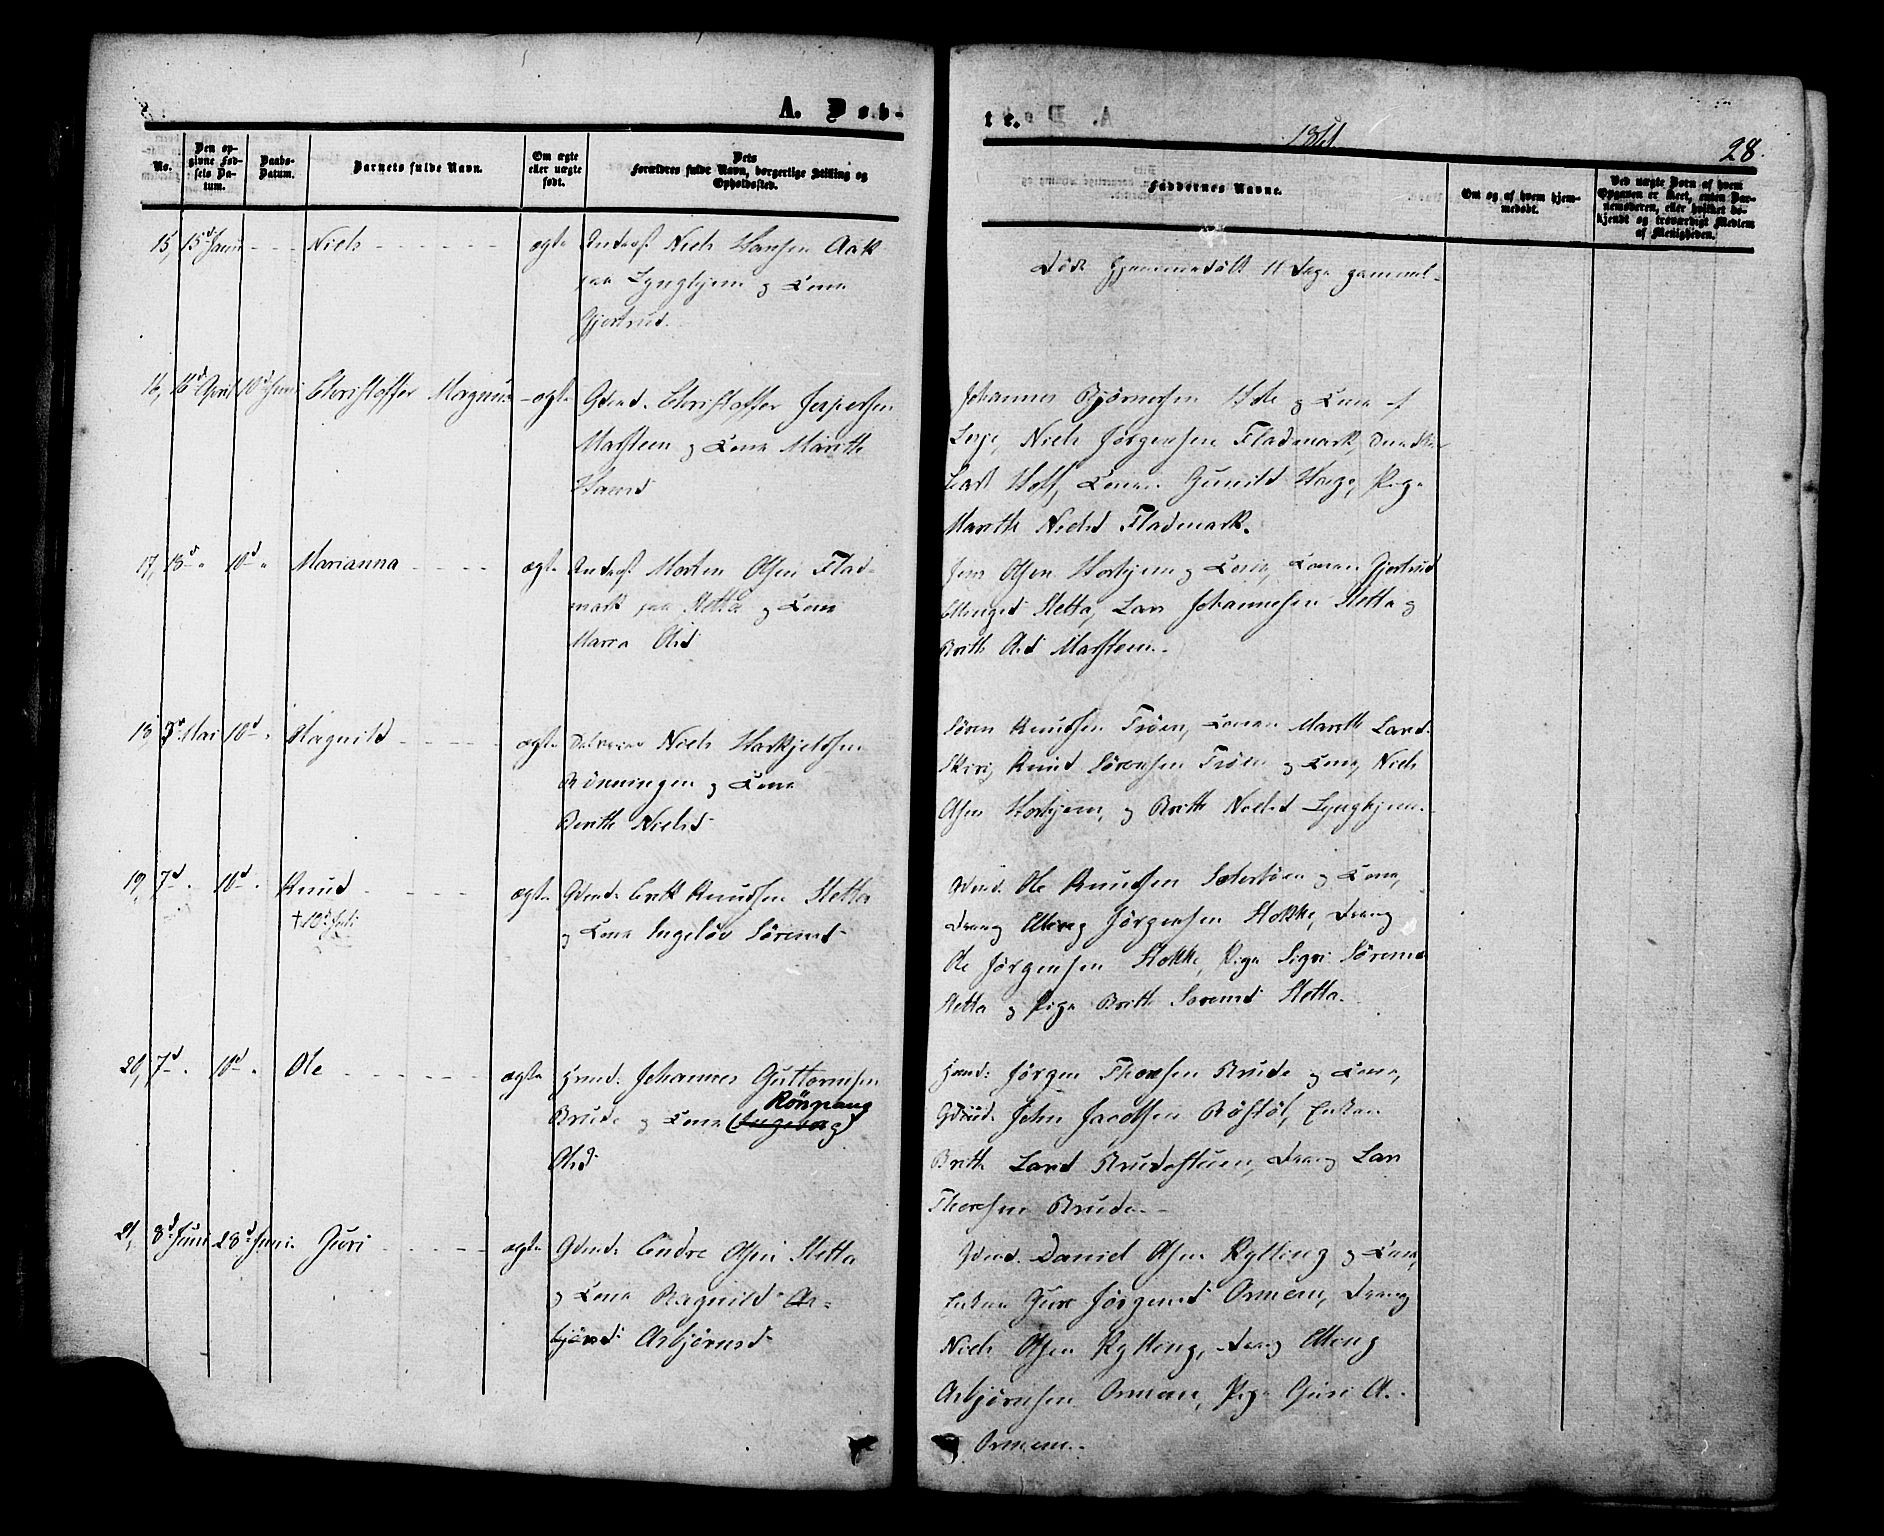 A. Døb-
te.
1861
28.
No.
Den op-
givne Fød-
sels Da-
tum.
Daabs-
Datum.
Barnets fulde Navn.
Om ægte
eller uægte
født.
Dets
Forældres fulde Navn, borgerlige Stilling og
Opholdssted.
Faddernes Navne.
Om og af hvem hjem-
medøbt.
Ved uægte Børn af hvem
Opgaven er skeet, enten Bar-
nemoderen, eller hvilket be-
kjendt og troværdigt Medlem
af Menigheden.
15, 15d Niels ægte Niels Hansen Aak
paa Lynghjem og Kone
Gjertrud.
Døde hjemmedøbt 11 Dage gammel.
16, 18d April 10d Juni Christoffer Magnus ægte Gbmd. Christoffer Jespersen
Marsteen og Kone Marith
Hansd
Johannes Bjørnersen og Kone
Niels Jørgensen Fladmark,
Kone Gunild Hauge, Pige
Marith Nielsd Fladmark.
17, 18d " 10d " Marianna ægte Morten Olsen Flad-
mark paa Stetta og Kone
Maria Olsd
Jens Olsen Horhjem og Kone, Konen Gjertrud
Ellingsd Stetta, Lars Johannesen Stetta og
Brith Olsd Marsteen.
18, Mai 10d " Ragnild ægte Niels
Rønningen og Kone
Berith Nielsd
Søren Knudsen Trøen, Konen Marith Larsd
Skiri, Knud Sørensen Trøen og Kone, Niels
Olsen Horhjem, og Brith Nielsd Lynghjem.
19, 7d " 10d " Knud ægte Gbmd. Erik Knudsen Stetta
† 10d Juli
og Kone Ingeløv Sørensd
Gbmd. Ole Knudsen Sletstøen og Kone,
Dreng Elling Jørgensen Stokke, Dreng
Ole Jørgensen Stokke, Pige Sigri Sørensd
Stetta og Pige Brith Sørensd Stetta.
20, 7d " 10d " Ole ægte Huusmd. Johannes Guttormsen
Rønnaug
Brude og Kone (Ingeborg)
Olsd
Jørgen Thoresen Brude og Kone,
Gbmd. John Jacobsen Bøstøl, Enken
Brith Larsd Brudesteen, Dreng Lars
Thoresen Brude.
21, 8d Juni 28d Juni Guri ægte Gbmd. Endre Olsen Stetta
og Kone Ragnild As-
bjørsd Asbjørnsd
Gbmd. Daniel Olsen Kylling og Kone,
Enken Guri Jørgensd Ormem, Dreng
Niels Olsen Kylling, Dreng Elling
Asbjørnsen Ormem, Pige Guri A.
Ormem.